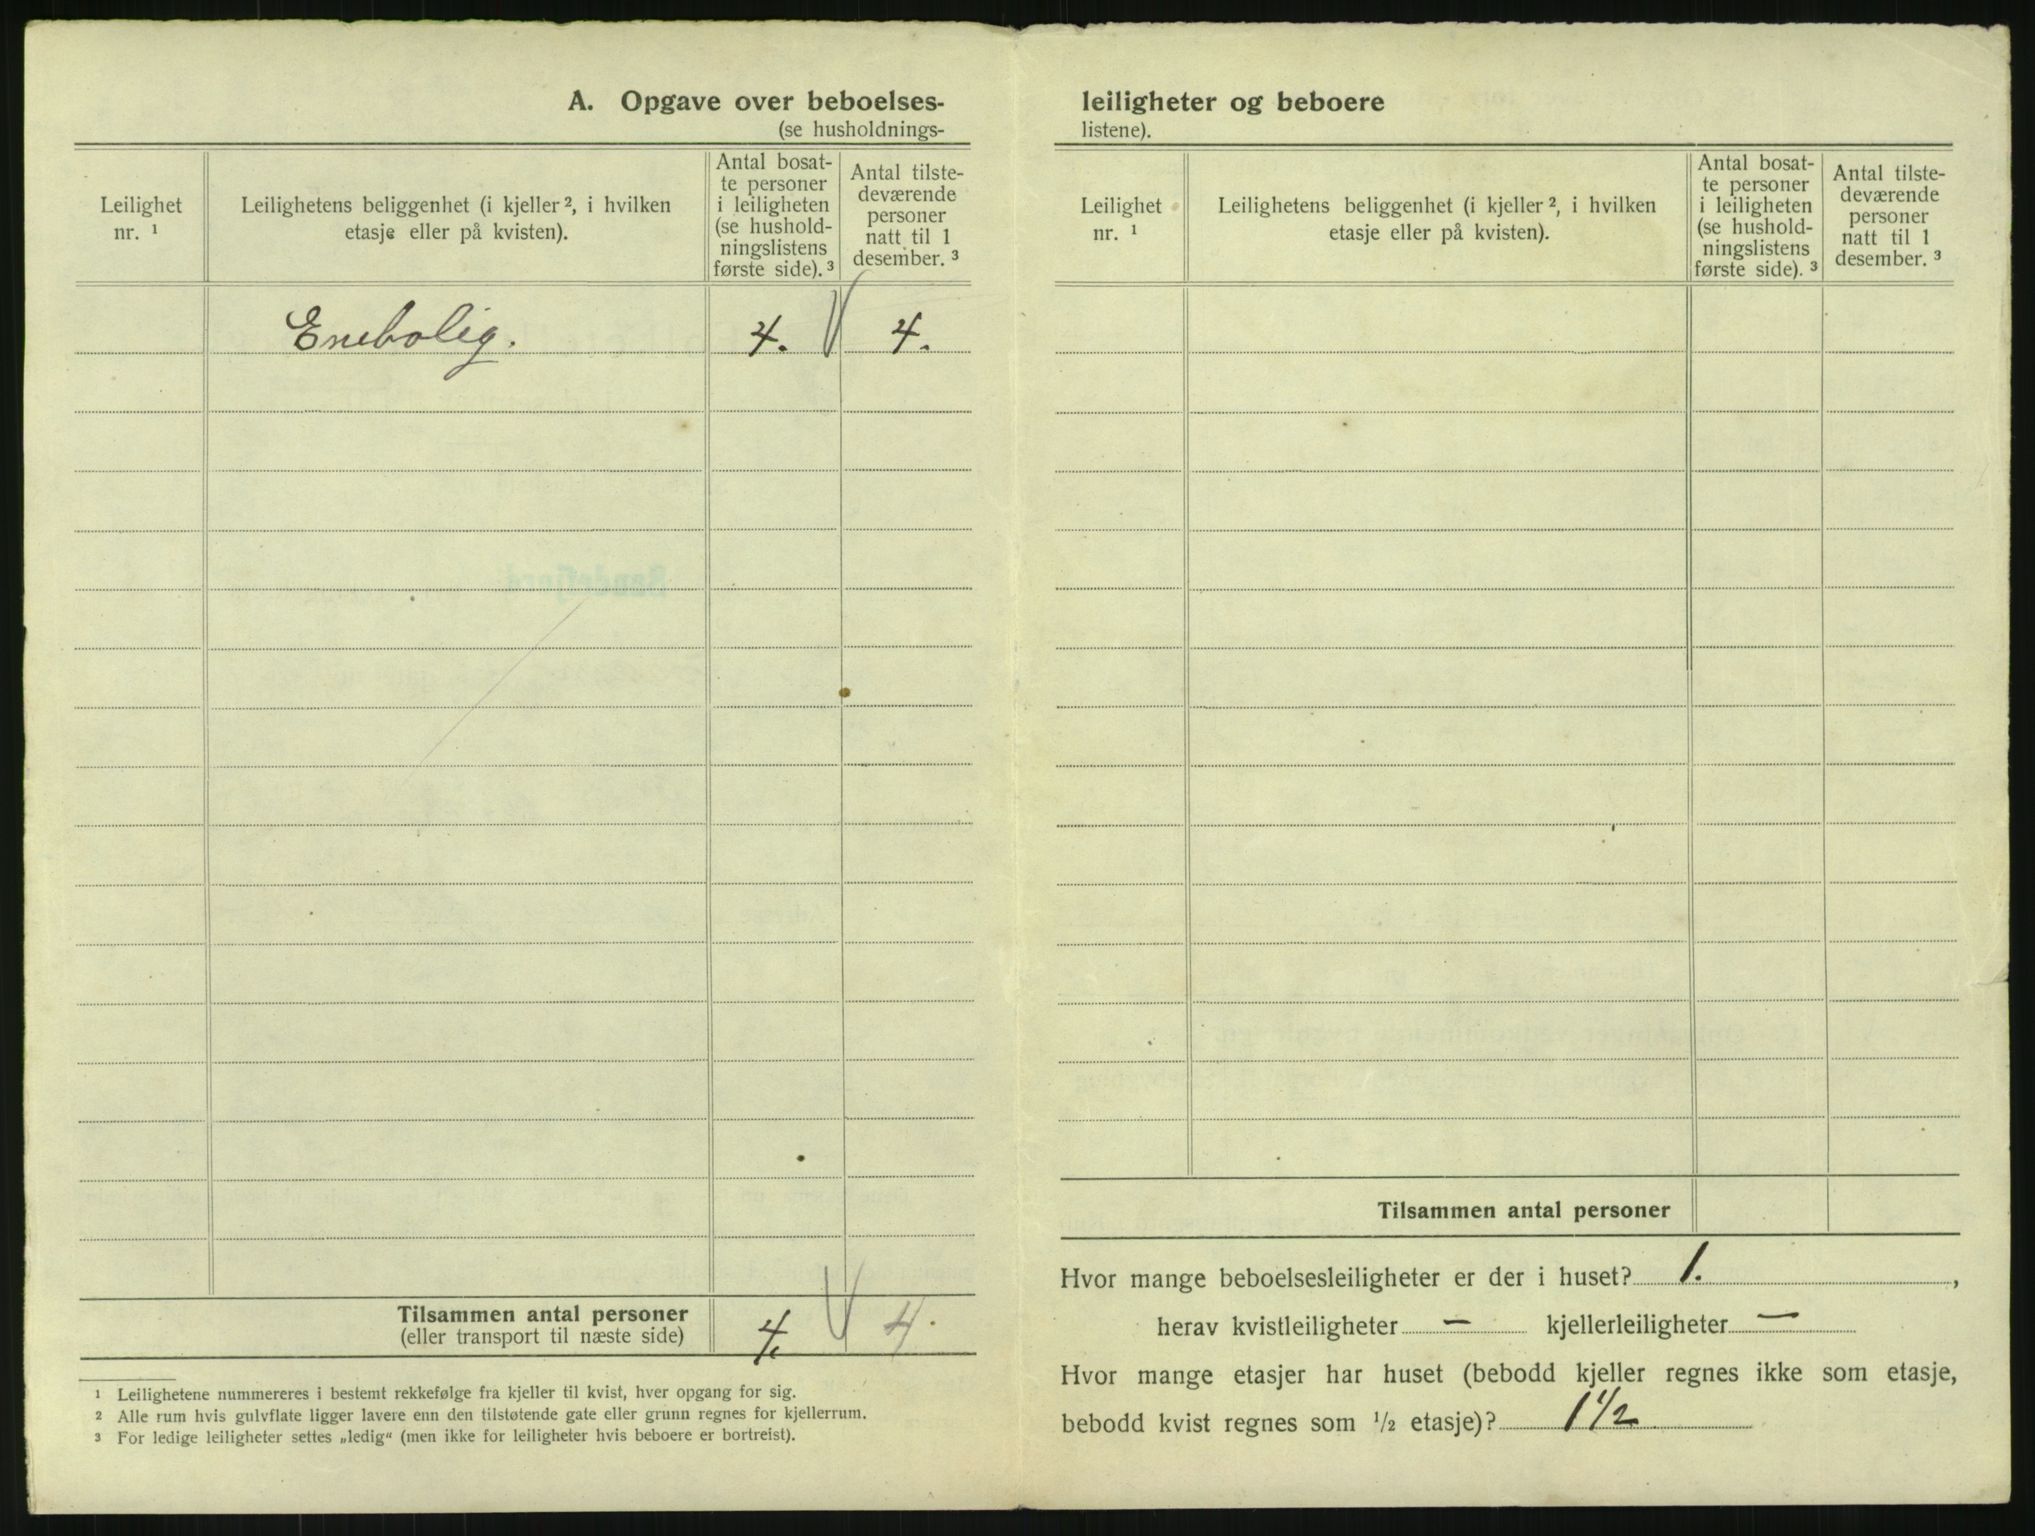 A. Opgave over beboelses-
(se husholdnings-
Leilighet
nr. ¹
Leilighetens beliggenhet (i kjeller ², i hvilken
etasje eller på kvisten).
Antal bosat-
te personer
i leiligheten
(se hushold-
ningslistens
første side). ³
Antal tilste-
deværende
personer
natt til 1
desember. ³
Enebolig. 4. 4.
Tilsammen antal personer
(eller transport til næste side)
4. 4.
¹ Leilighetene nummereres i bestemt rekkefølge fra kjeller til kvist, hver opgang for sig.
² Alle rum hvis gulvflate ligger lavere enn den tilstøtende gate eller grunn regnes for kjellerrum.
³ For ledige leiligheter settes „ledig“ (men ikke for leiligheter hvis beboere er bortreist).
leiligheter og beboere
listene).
Leilighet
nr. ¹
Leilighetens beliggenhet (i kjeller ², i hvilken
etasje eller på kvisten).
Antal bosat-
te personer
i leiligheten
(se hushold-
ningslistens
første side). ³
Antal tilste-
deværende
personer
natt til 1
desember. ³
Tilsammen antal personer
Hvor mange beboelsesleiligheter er der i huset? 1. ,
herav kvistleiligheter — kjellerleiligheter —
Hvor mange etasjer har huset (bebodd kjeller regnes ikke som etasje,
bebodd kvist regnes som ½ etasje)? 1½